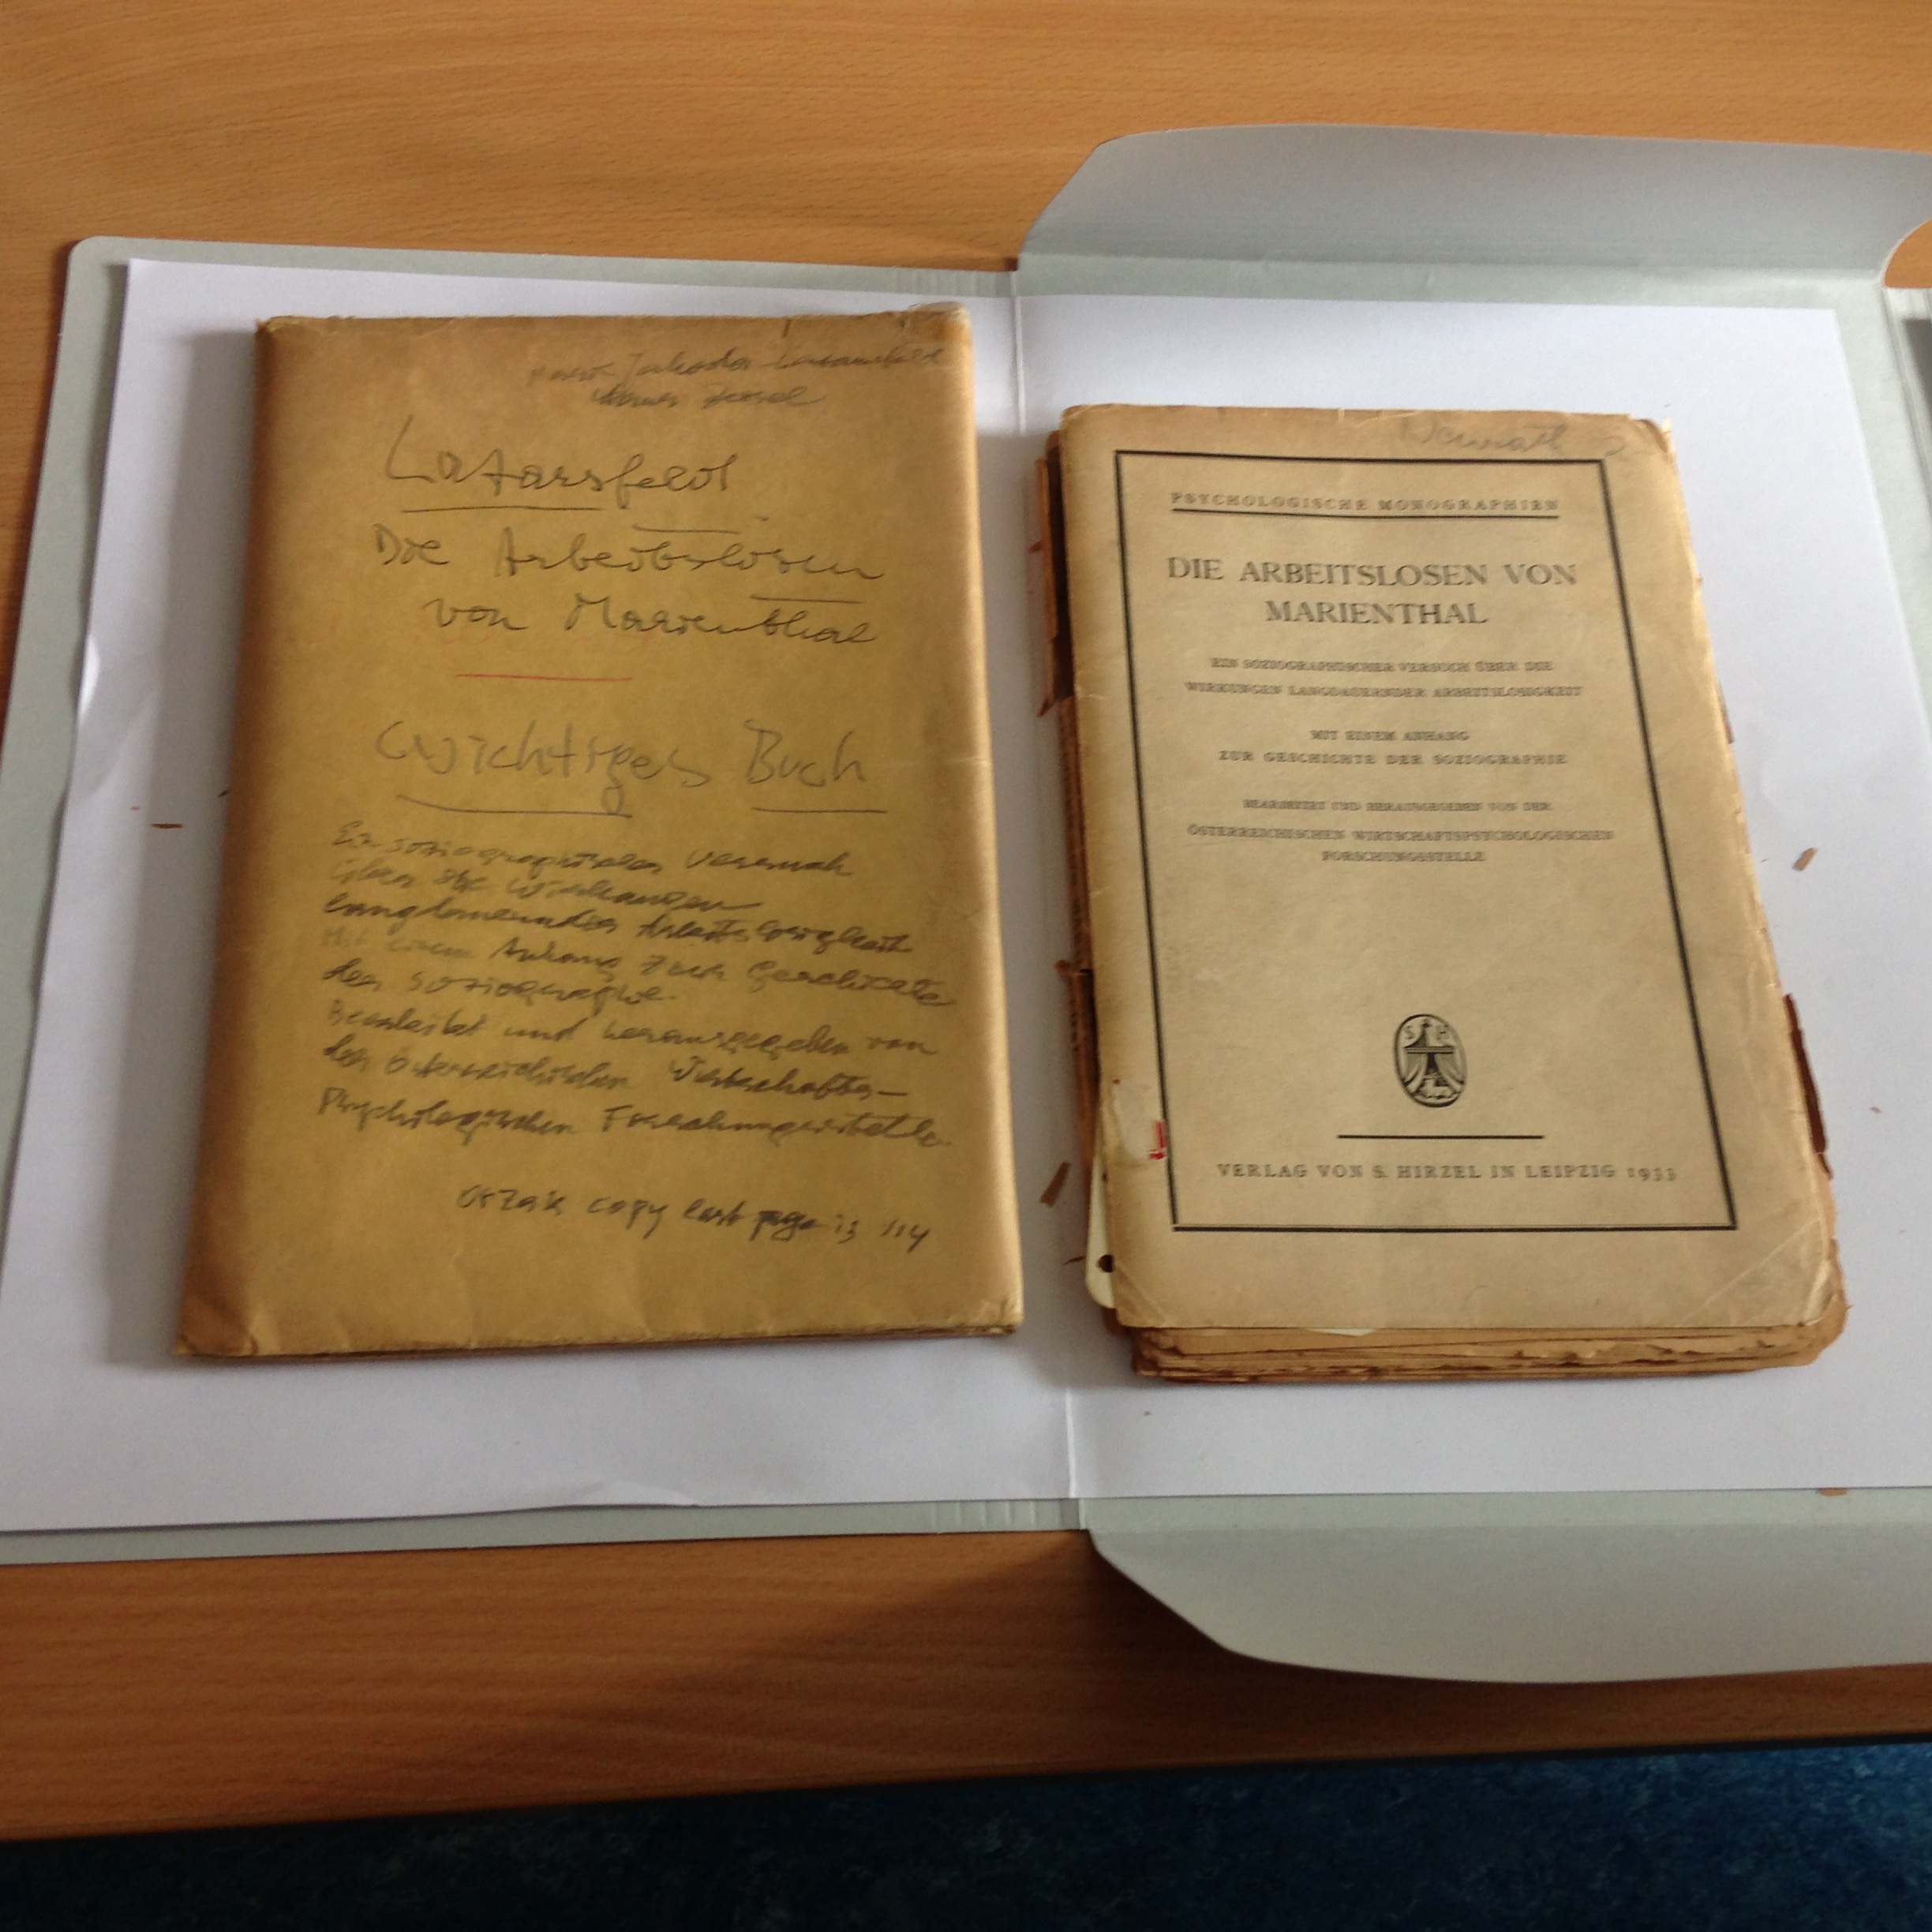 Jahoda-Lazarsfeld
Zeisel
Lazarsfeld
Die Arbeitslosen
von Marienthal
Wichtiges Buch
Ein soziographischer Versuch
über die Wirkungen
langdauernder Arbeitslosigkeit
Mit einem Anhang zur Geschichte
der Soziographie.
Bearbeitet und herausgegeben von
der österreichischen Wirtschafts-
Psychologischen Forschungsstelle.
copy last page is 114
Neurath
PSYCHOLOGISCHE MONOGRAPHIEN
DIE ARBEITSLOSEN VON
MARIENTHAL
EIN SOZIOGRAPHISCHER VERSUCH ÜBER DIE
WIRKUNGEN LANGDAUERNDER ARBEITSLOSIGKEIT
MIT EINEM ANHANG
ZUR GESCHICHTE DER SOZIOGRAPHIE
BEARBEITET UND HERAUSGEGEBEN VON DER
ÖSTERREICHISCHEN WIRTSCHAFTSPSYCHOLOGISCHEN
FORSCHUNGSSTELLE
S H
VERLAG VON S. HIRZEL IN LEIPZIG 1933